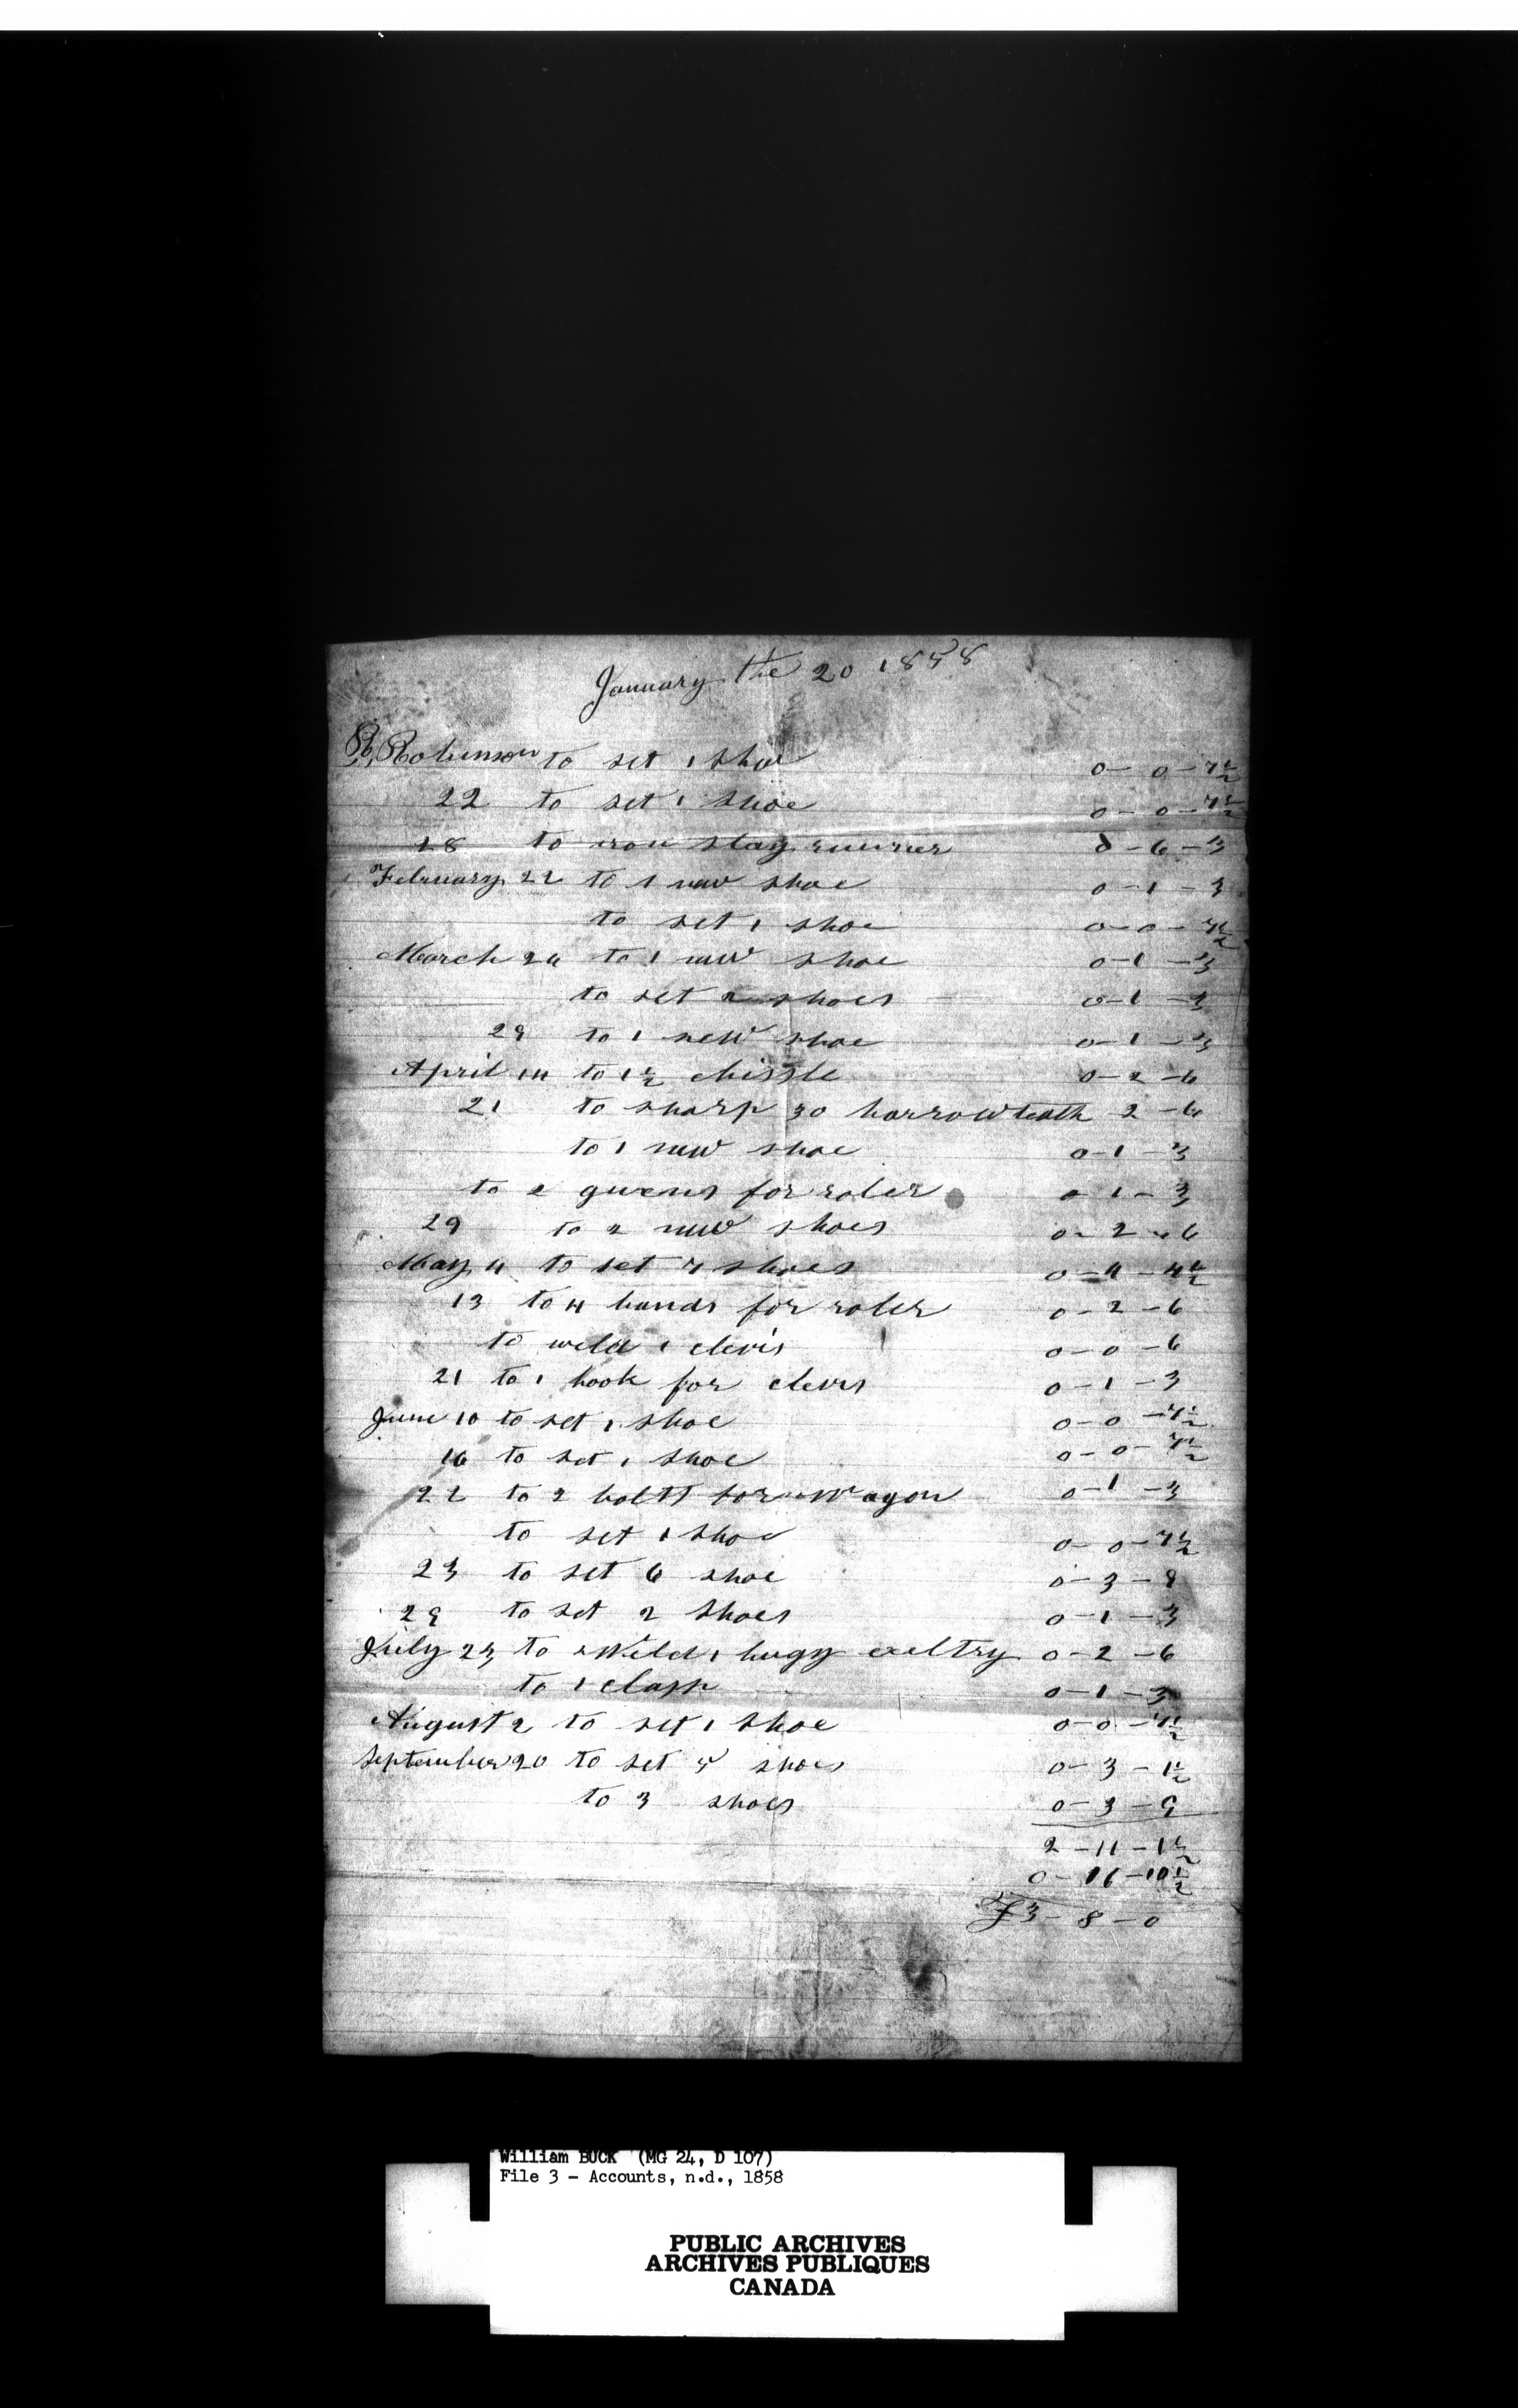 January the 20 1858
R, Robinson to set 1 shoe 0 - 0 - 7½
22 to set 1 shoe 0 - 0 - 7½
28 to iron slay runner 0 - 6 - 3
February 22 to 1 new shoe 0 - 1 - 3
to set 1 shoe 0 - 0 - 7½
March 24 to 1 new shoe 0 - 1 - 3
to set 2 shoes 0 - 1 - 3
29 to 1 new shoe 0 - 1 - 3
April 14 to 1½ chissle 0 - 2 - 6
21 to sharp 30 harrow teath 2 - 6
to 1 new shoe 0 - 1 - 3
to 2 for roler 0 - 1 - 3
29 to 2 new shoes 0 - 2 - 6
May 4 to set 7 shoes 0 - 4 - 4½
13 to 4 bands for roler 0 - 2 - 6
to weld 1 clevis 0 - 0 - 6
21 to 1 hook for clevis 0 - 1 - 3
June 10 to set 1 shoe 0 - 0 - 7½
16 to set 1 shoe 0 - 0 - 7½
22 to 2 bolts for Wagon 0 - 1 - 3
to set 1 shoe 0 - 0 - 7½
23 to set 6 shoe 0 - 3 - 9
29 to set 2 shoes 0 - 1 - 3
July 23 to Weld 1 bugy exeltry 0 - 2 - 6
to 1 clasp 0 - 1 - 3
August 2 to set 1 shoe 0 - 0 - 7½
September 20 to set 5 shoes 0 - 3 - 1½
to 3 shoes 0 - 3 - 9
2 - 11 - 1½
0 - 16 - 10½
£ 3 - 8 - 0
William BUCK (MG 24, D 107)
File 3 - Accounts, n.d., 1858
PUBLIC ARCHIVES
ARCHIVES PUBLIQUES
CANADA